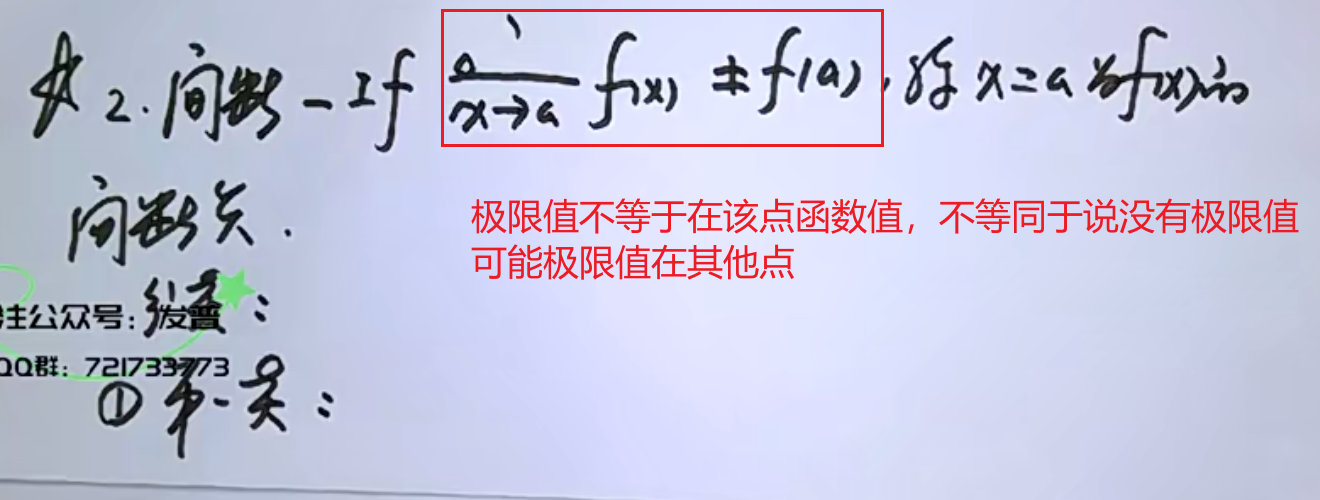 2. 间断 — If lim x→a f(x) ≠ f(a), 称 x=a 为 f(x) 的
间断点.
极限值不等于在该点函数值，不等同于说没有极限值
可能极限值在其他点
分类：
注公众号：发普
QQ群：721733773
① 第一类：